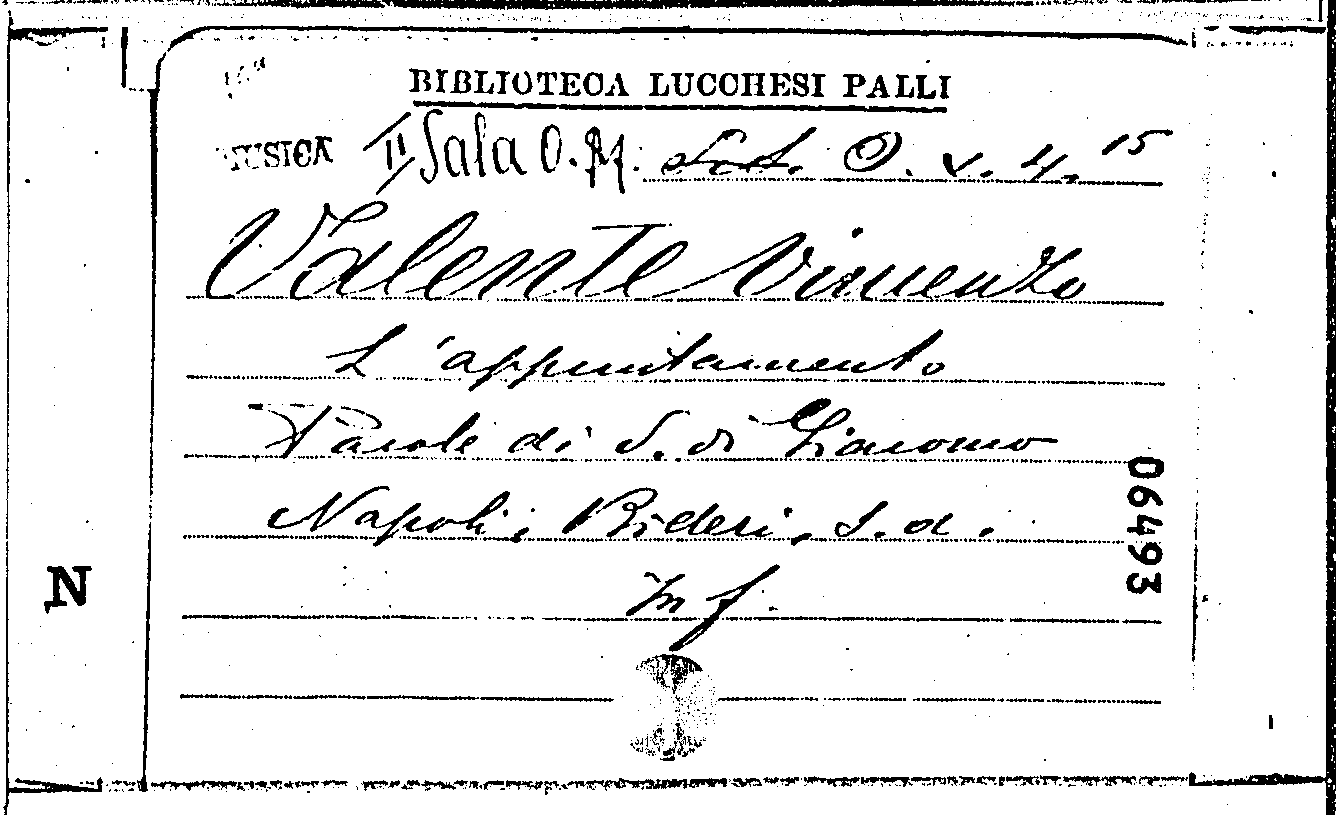 BIBLIOTECA LUCCHESI PALLI
MUSICA II Sala O. M. O. x. 4. 15
Valente Vincenzo
L'appuntamento
Parole di S. di Giacomo
Napoli, Bideri, s. d.
In f.
06493
N